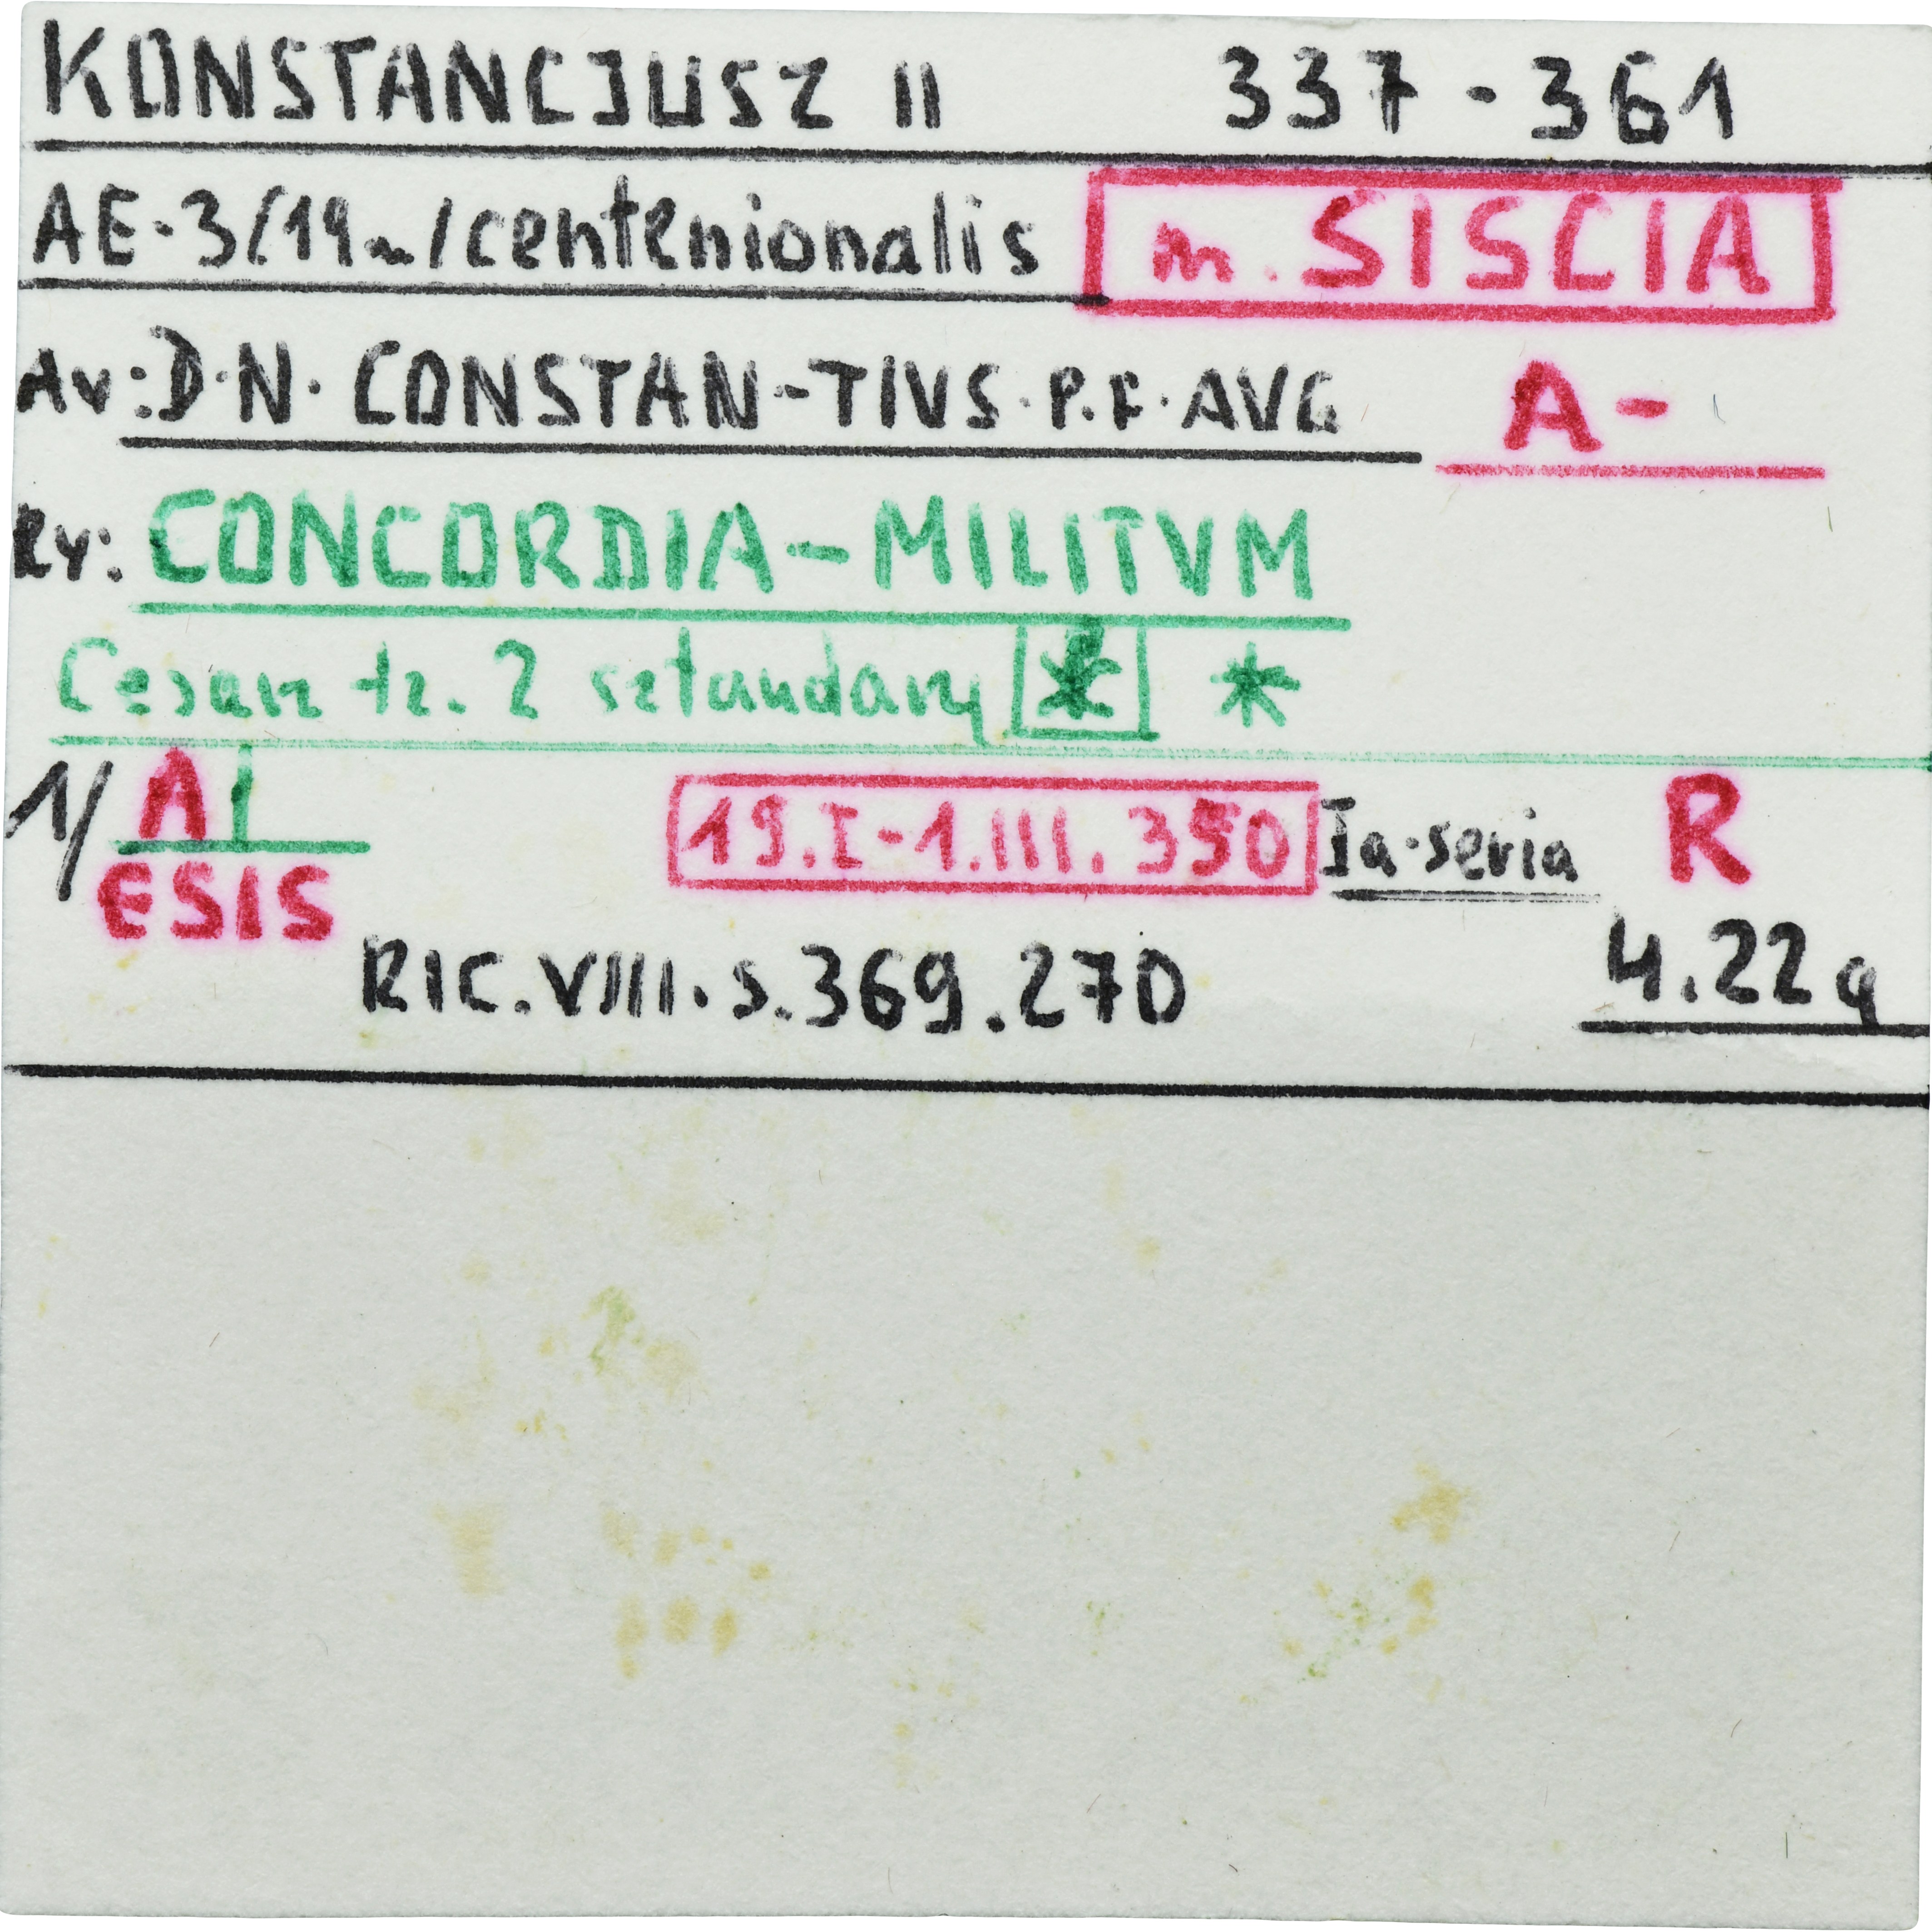 KONSTANCJUSZ II 337-361
AE-3/19m/centenionalis m. SISCIA
Av: D·N· CONSTAN-TIVS·P.F·AVG A-
Rv: CONCORDIA-MILITVM
Cesarz tz. 2 sztandary * *
1/ A|
ESIS
19.I-1.III.350 Ia·seria R
RIC.VIII.s.369.270 4.22g